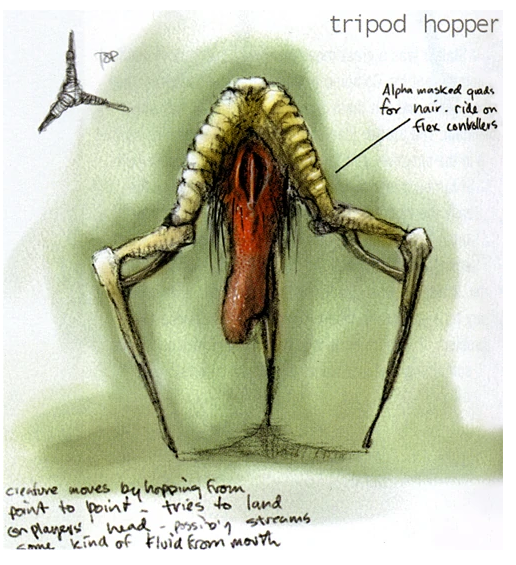 tripod hopper
TOP
Alpha masked quads
for hair. ride on
flex controllers
creature moves by hopping from
point to point - tries to land
on players' head - possibly streams
some kind of fluid from mouth